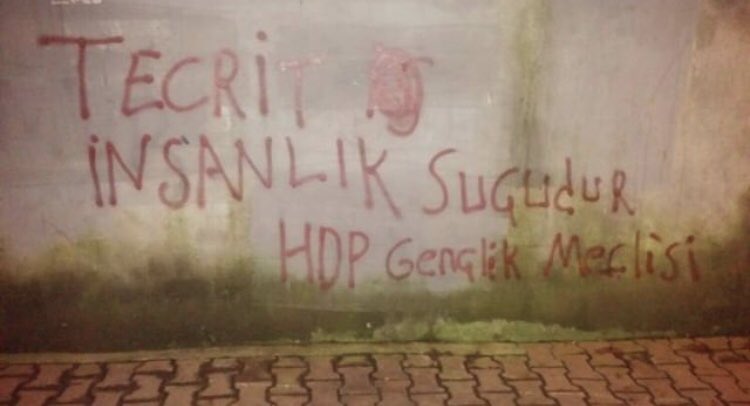 TECRİT
İNSANLIK SUÇUDUR
HDP Gençlik Meclisi